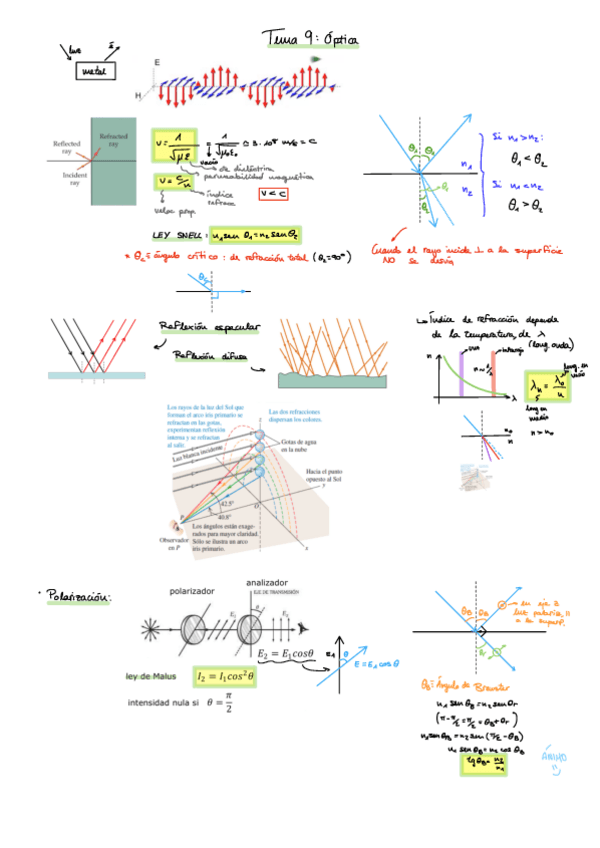 Tema 9: Óptica
luz
metal
E
H
Reflected ray
Refracted ray
Incident ray
v = 1/√με = 1/√μ₀ε₀ ≃ 3·10⁸ m/s = c
vacío
cte dieléctrica
permeabilidad magnética
v = c/n
índice refracc
v < c
veloc prop.
LEY SNELL: n₁ sen θ₁ = n₂ sen θ₂
θc = ángulo crítico: de refracción total (θ₂ = 90°)
θ₁
θ₁
n₁
n₂
θ₂
θ₂
Si n₁ > n₂:
θ₁ < θ₂
Si n₁ < n₂
θ₁ > θ₂
Cuando el rayo incide ⊥ a la superficie
NO se desvía
Reflexión especular
Reflexión difusa
Índice de refracción depende
de la temperatura, de λ
(long. onda)
n
λ
λn = λ₀/n
long. en vacío
long en medio
n₀
n
n > n₀
Los rayos de la luz del Sol que
forman el arco iris primario se
refractan en las gotas,
experimentan reflexión
interna y se refractan
al salir.
Las dos refracciones
dispersan los colores.
Gotas de agua
en la nube
Luz blanca incidente
Hacia el punto
opuesto al Sol
y
42.5°
40.8°
O
P
Observador
en P
Los ángulos están exage-
rados para mayor claridad.
Sólo se ilustra un arco
iris primario.
x
Polarización:
polarizador
analizador
EJE DE TRANSMISIÓN
θ
E₁
E₂
E₂ = E₁cosθ
E = E₁ cos θ
ley de Malus
I₂ = I₁cos²θ
intensidad nula si θ = π/2
θB θB
en eje z
luz polariz. ||
a la superf.
θr
θB: Ángulo de Brewster
n₁ sen θB = n₂ sen θr
(π - π/2 = π/2 = θB + θr)
n₁ sen θB = n₂ sen (π/2 - θB)
n₁ sen θB = n₂ cos θB
tg θB = n₂/n₁
ÁNIMO